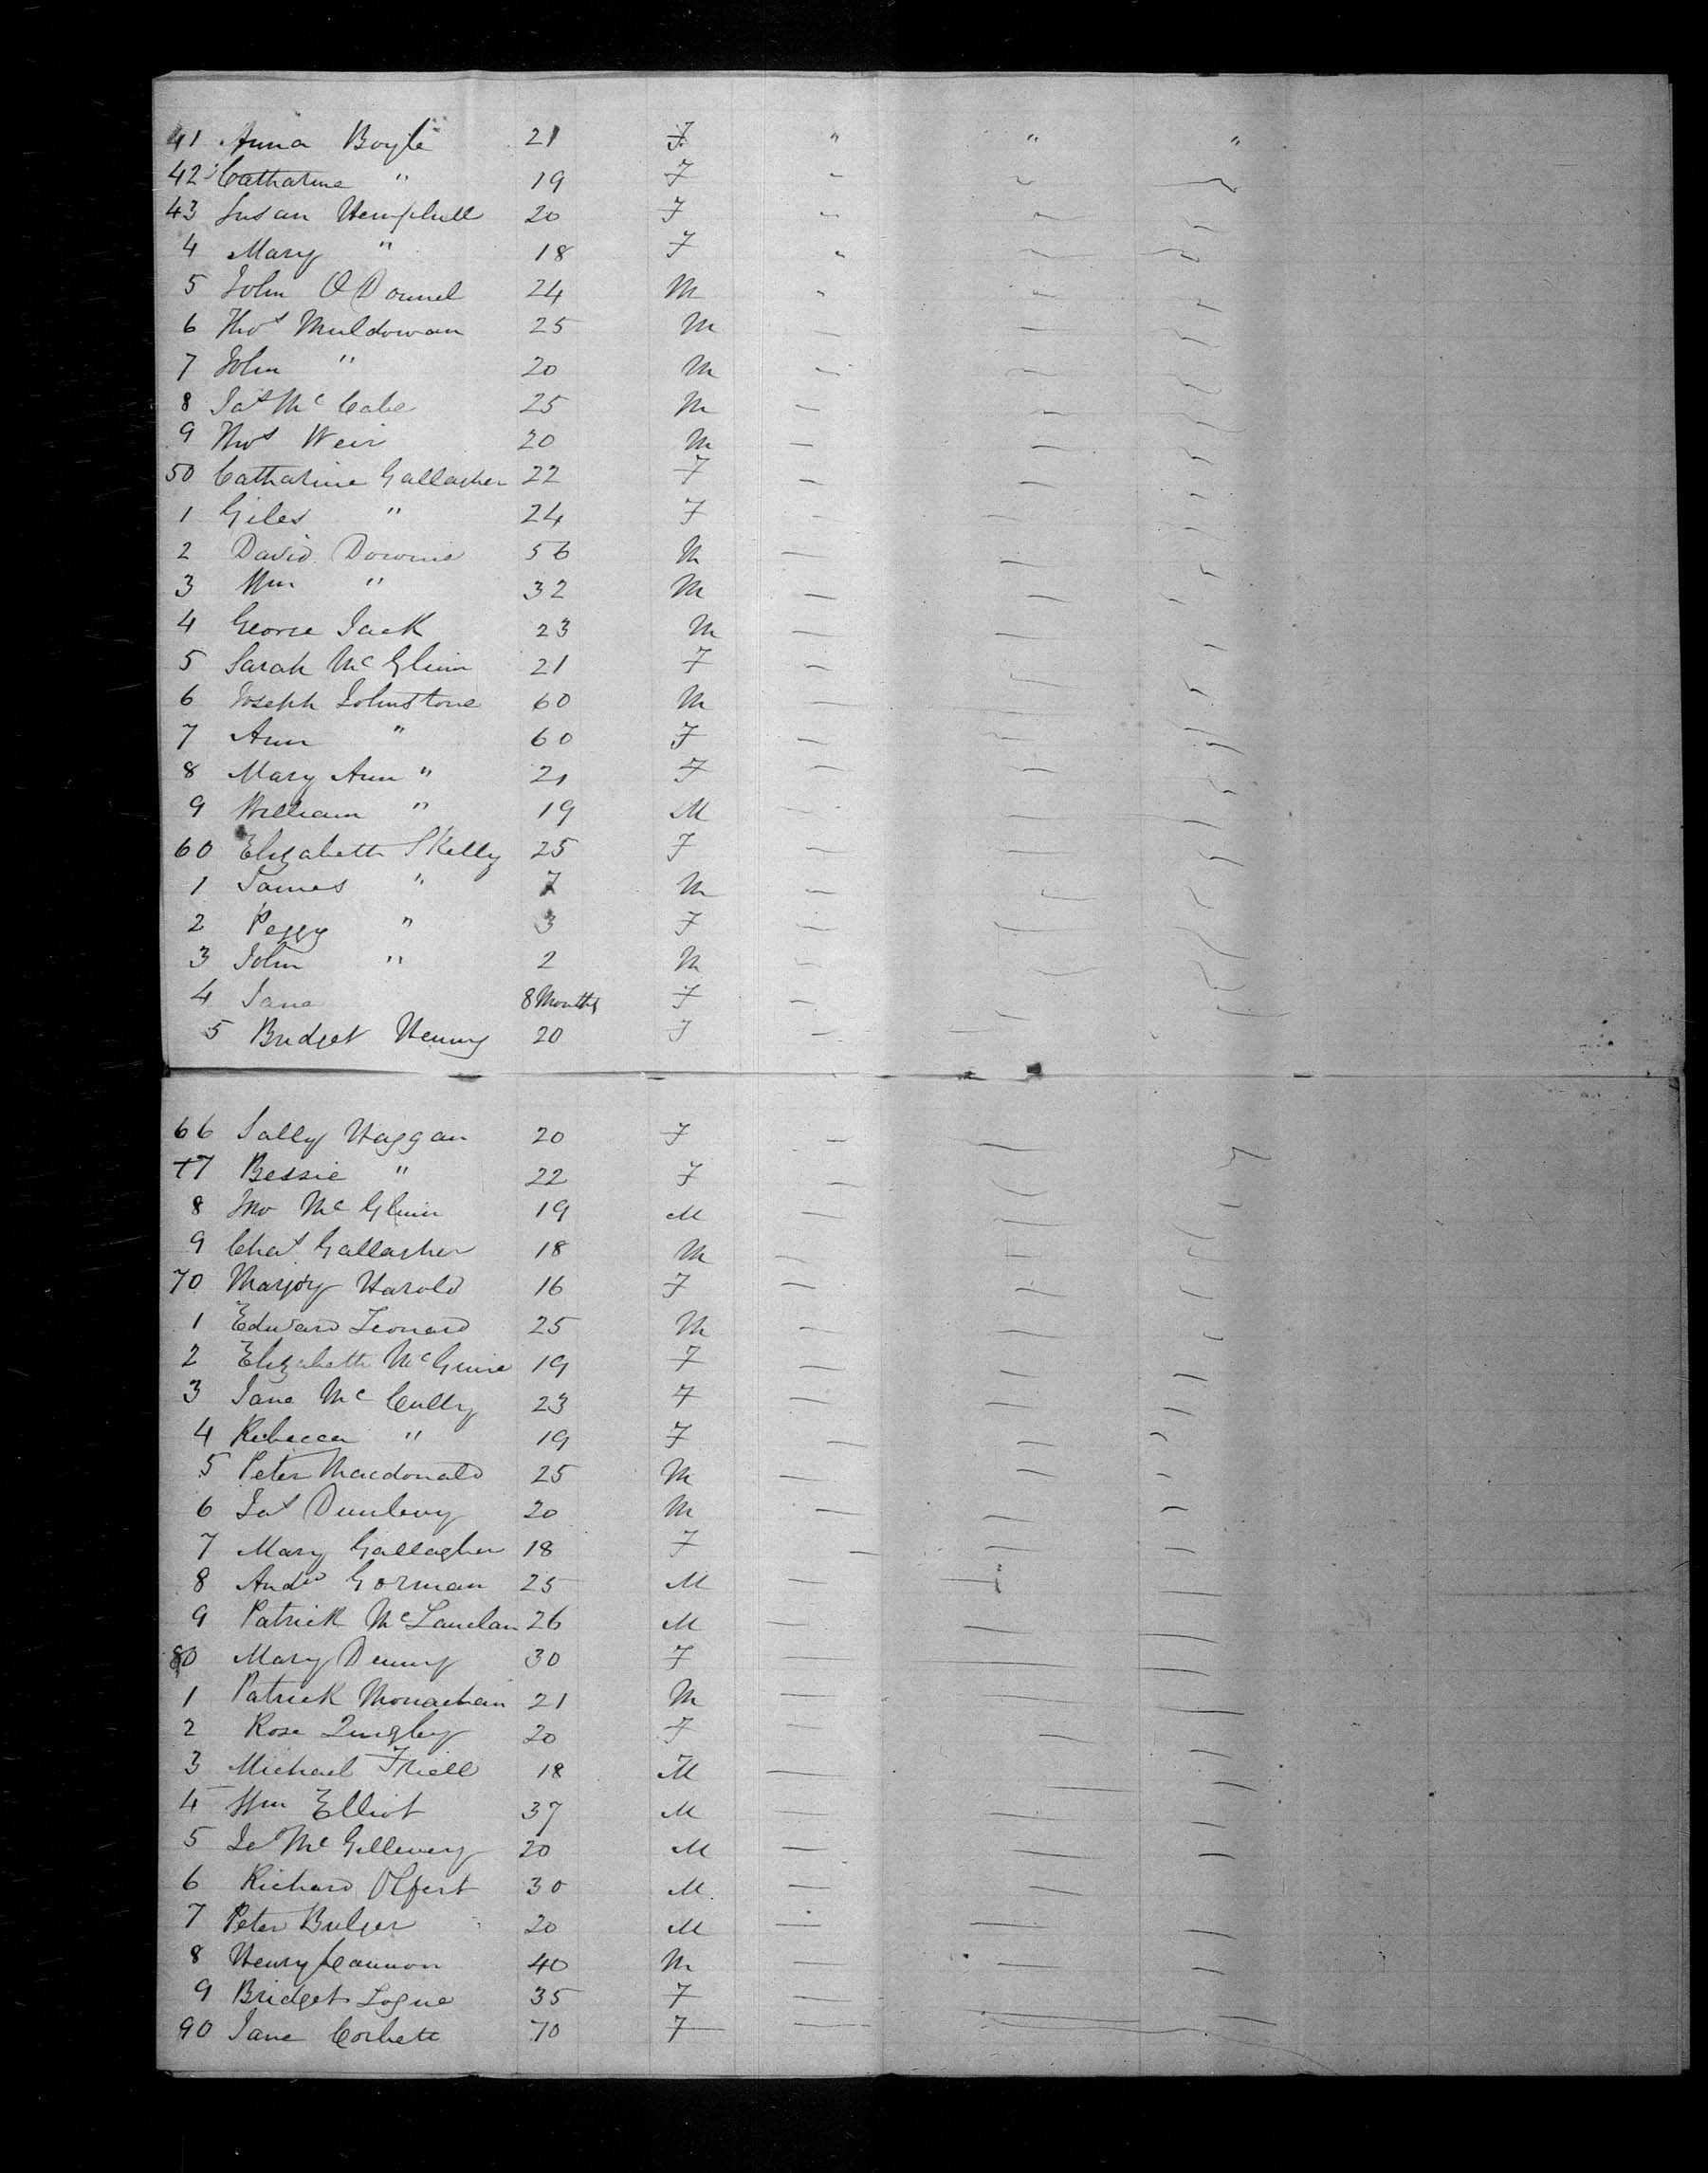 41 Anna Boyle 21 F " " "
42 Catharine " 19 F " " "
43 Susan Hemphill 20 F
4 Mary " 18 F
5 John O Donnel 24 M
6 Thos Muldowan 25 M
7 John " 20 M
8 Jas Mc Cabe 25 M
9 Thos Weir 20 M
50 Catharine Gallagher 22 F
1 Giles " 24 F
2 David Downie 56 M
3 Wm " 32 M
4 George Jack 23 M
5 Sarah Mc Glinn 21 F
6 Joseph Johnstone 60 M
7 Ann " 60 F
8 Mary Ann " 21 F
9 William " 19 M
60 Elizabeth Skelly 25 F
1 James " 7 M
2 Peggy " 3 F
3 John " 2 M
4 Jane 8 Months F
5 Bridget Henny 20 F
66 Sally Haggan 20 F
7 Bessie " 22 F
8 Jno Mc Glinn 19 M
9 Chas Gallagher 18 M
70 Marjory Harold 16 F
1 Edward Leonard 25 M
2 Elizabeth McGuire 19 F
3 Jane Mc Cully 23 F
4 Rebecca " 19 F
5 Peter Macdonald 25 M
6 Jas Dunlevy 20 M
7 Mary Gallagher 18 F
8 Andw Gorman 25 M
9 Patrick Mc 26 M
80 Mary Denny 30 F
1 Patrick Monaghan 21 M
2 Rose Quigley 20 F
3 Michael Friell 18 M
4 Wm Elliot 37 M
5 Mc Gillevery 20 M
6 Richard Olfert 30 M
7 Peter Bulger 20 M
8 Henry Cannon 40 M
9 Bridget Logue 35 F
90 Jane Corbett 70 F